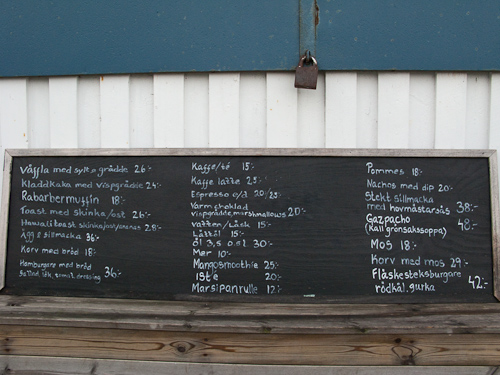 Våffla med sylt o grädde 26:-
Kladdkaka med vispgrädde 24:-
Rabarbermuffin 18:-
Toast med skinka/ost 26:-
Hawaii toast skinka/ost/ananas 28:-
Ägg & sillmacka 36:-
Korv med bröd 18:-
Hamburgare med bröd
Sallad, lök, tomat, dressing 36:-
Kaffe/té 15:-
Kaffe latte 25:-
Espresso e/d 20/25:-
Varm choklad
vispgrädde, marshmallows 20:-
Vatten/Läsk 15:-
Lättöl 15:-
Öl 3,5 0.5l 30:-
Mer 10:-
Mangosmoothie 25:-
Iste 20:-
Marsipanrulle 12:-
Pommes 18:-
Nachos med dip 20:-
Stekt sillmacka
med hovmästarsås 38:-
Gazpacho
(Kall grönsakssoppa) 48:-
Mos 18:-
Korv med mos 29:-
Fläskesteksburgare
rödkål, gurka 42:-